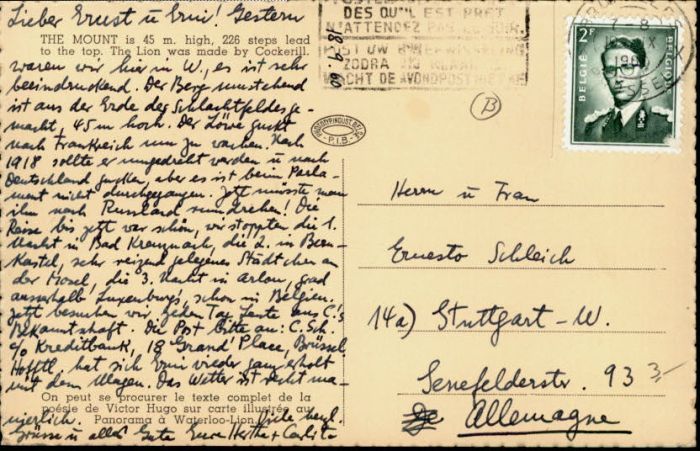 Lieber Ernst u Erni! Gestern
THE MOUNT is 45 m. high, 226 steps lead
to the top. The Lion was made by Cockerill.
waren wir hier in W., es ist sehr
beeindruckend. Der Berg umstehend
ist aus der Erde des Schlachtfeldes ge-
macht, 45 m hoch. Der Löwe guckt
nach Frankreich um zu wachen. Nach
1918 sollte er umgedreht werden u nach
Deutschland gucken, aber es ist beim Parla-
ment nicht durchgegangen. Jetzt müsste man
ihn nach Russland rumdrehen! Die
Reise bis jetzt war schön, wir stoppten die 1.
Nacht in Bad Kreuznach, die 2. in Bern-
kastel, sehr reizend gelegenes Städtchen an
der Mosel, die 3. Nacht in Arlon, grad
ausserhalb Luxenburg's, schon in Belgien.
Jetzt besuchen wir jeden Tag Leute aus C.'s
Bekanntschaft. Die Post bitte an: C. Sch.
c/o Kreditbank, 18 Grand' Place, Brüssel
Hofftl hat sich Erni wieder ganz erholt
mit dem Magen. Das Wetter ist recht ma-
On peut se procurer le texte complet de la
poésie de Victor Hugo sur carte illustrée au
Panorama à Waterloo-Lion.
nierlich.
Grüsse u alles Gute Eure Hertha + Carlito
DES QU'IL EST PRET
N'ATTENDEZ PAS
POST UW
ZODRA
WACHT DE AVONDPOST NIET AF
18 9 60
PHOTOTYP. INDUST. BELGE
P.I.B.
B
2F
BELGIE
BELGIQUE
Herrn u Frau
Ernesto Schleich
14a) Stuttgart-W.
Senefelderstr. 93
Allemagne